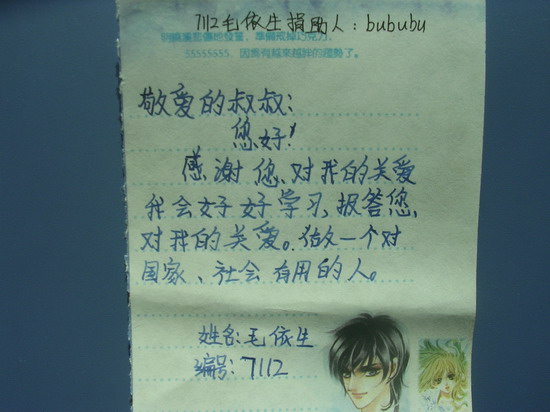 7112毛依生捐助人：bububu
55555555，因為有越來越胖的趨勢了。
敬爱的叔叔：
您好！
感谢您、对我的关爱
我会好好学习，报答您，
对我的关爱。做一个对
国家、社会有用的人。
姓名：毛依生
编号：7112